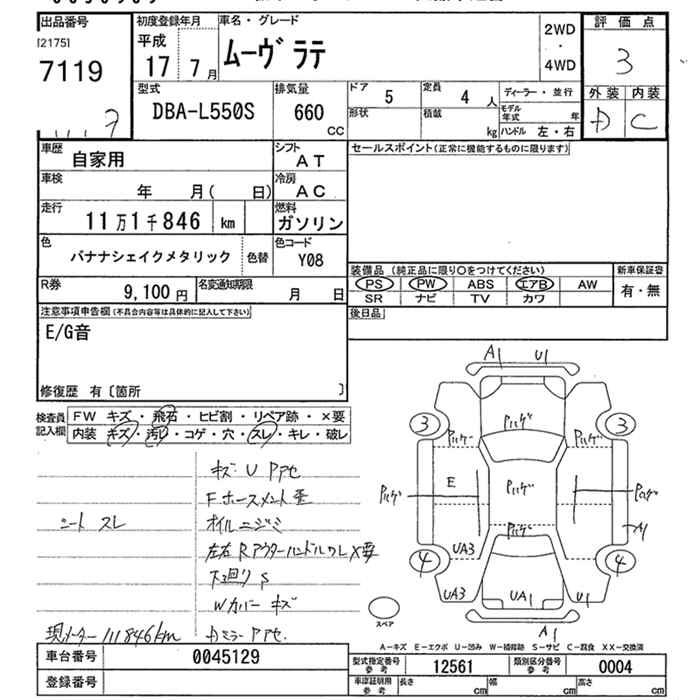 出品番号
[2175]
7119
初度登録年月
平成
17 7月
車名・グレード
ムーヴラテ
2WD
・
4WD
評価点
3
外装 内装
D C
型式
DBA-L550S
排気量
660
CC
ドア
5
定員
4人
形状
積載
kg
ディーラー・並行
モデル年式 年
ハンドル 左・右
車歴
自家用
シフト
AT
車検
年 月( 日)
冷房
AC
走行
11万1千846 km
燃料
ガソリン
色
バナナシェイクメタリック
色替
色コード
Y08
R券
9,100円
名変通知期限
月 日
セールスポイント(正常に機能するものに限ります)
装備品 (純正品に限り〇をつけてください)
PS PW ABS エアB AW
SR ナビ TV カワ
新車保証書
有・無
後日品
注意事項申告欄(不具合内容等は具体的に記入して下さい)
E/G音
修復歴 有〔箇所 〕
検査員記入欄
FW キズ・飛石・ヒビ割・リペア跡・×要
内装 キズ・汚れ・コゲ・穴・スレ・キレ・破レ
シート スレ
現メーター 111846km
キズ U Pアセ
Fホースメント歪
オイルニジミ
左右RアウターハンドルのレX要
下廻りS
Wカバー キズ
Dミラー Pアセ
A1 U1
3 3
Pハゲ
Pハゲ Pハゲ
Pハゲ E Pハゲ Pハゲ
Pハゲ
A1
UA3
4 4
UA3 UA1 U1
A1
スペア
A-キズ E-エクボ U-凹み W-補修跡 S-サビ C-腐食 XX-交換済
車台番号
0045129
登録番号
型式指定番号
参考
12561
類別区分番号
参考
0004
車庫証明用
参考
長さ cm 幅 cm 高さ cm